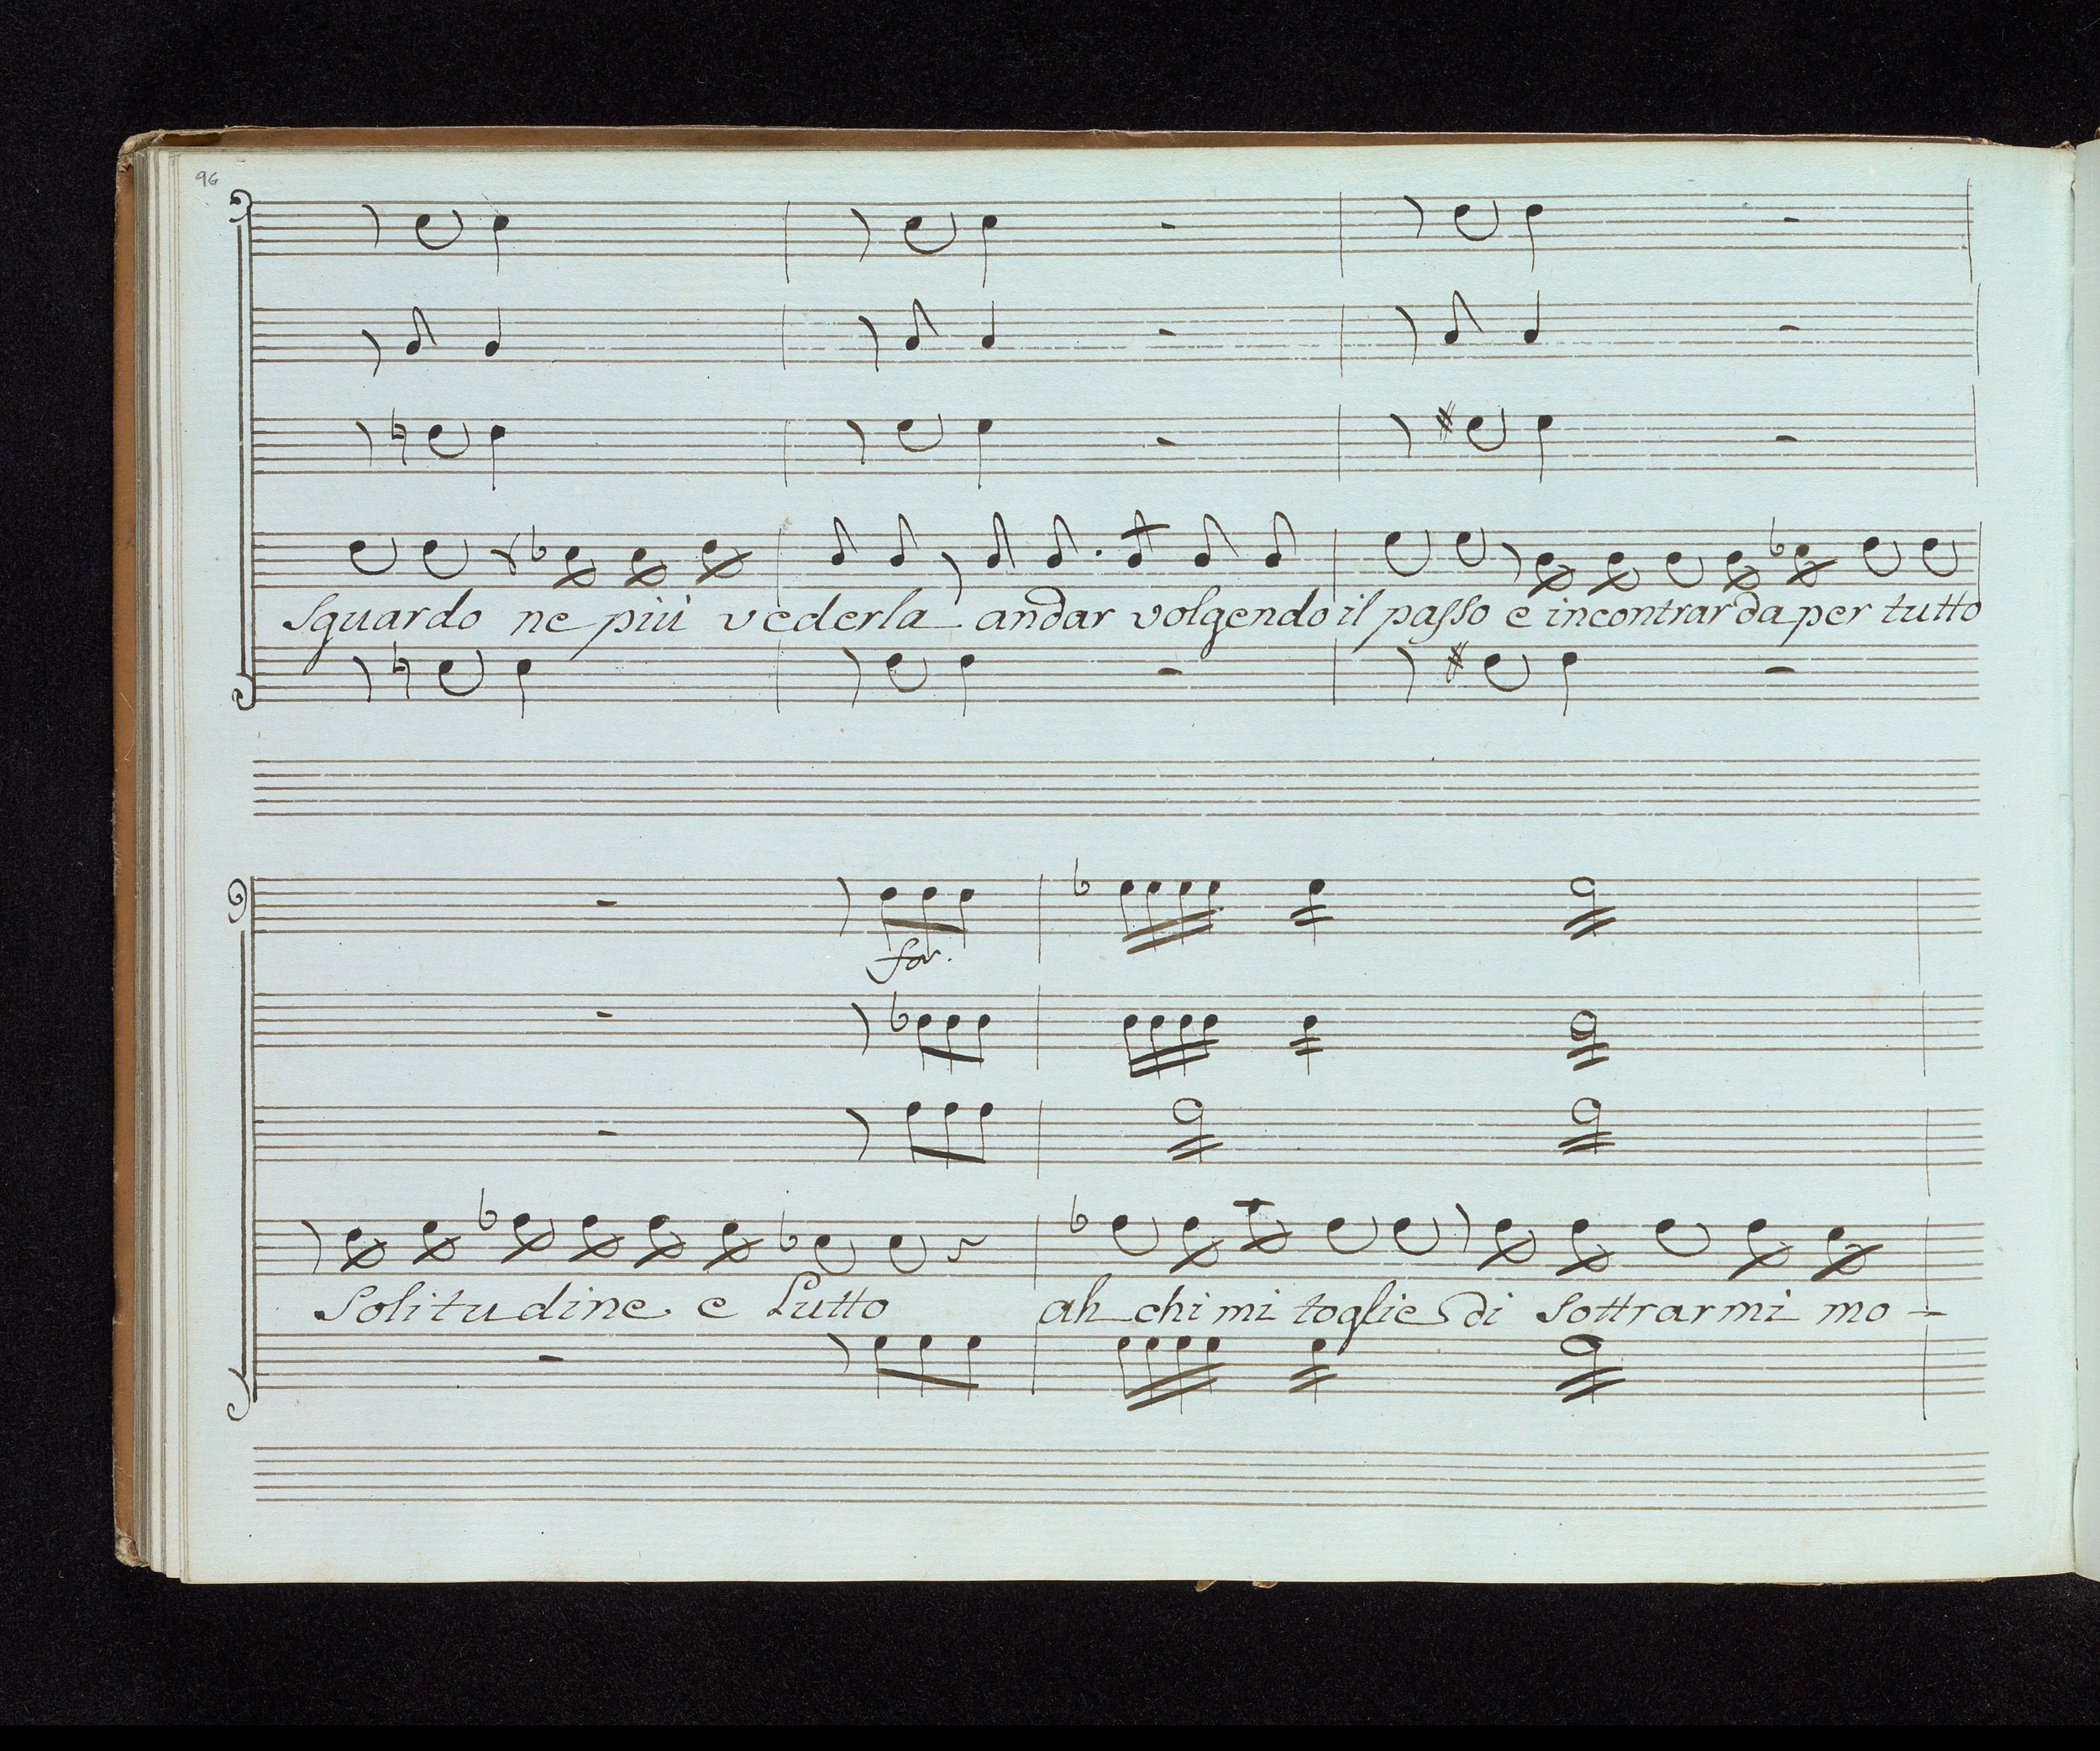 96
Sguardo ne più vederla andar volgendo il passo e incontrar da per tutto
for.
Solitudine e Lutto ah chi mi toglie di sottrarmi mo-